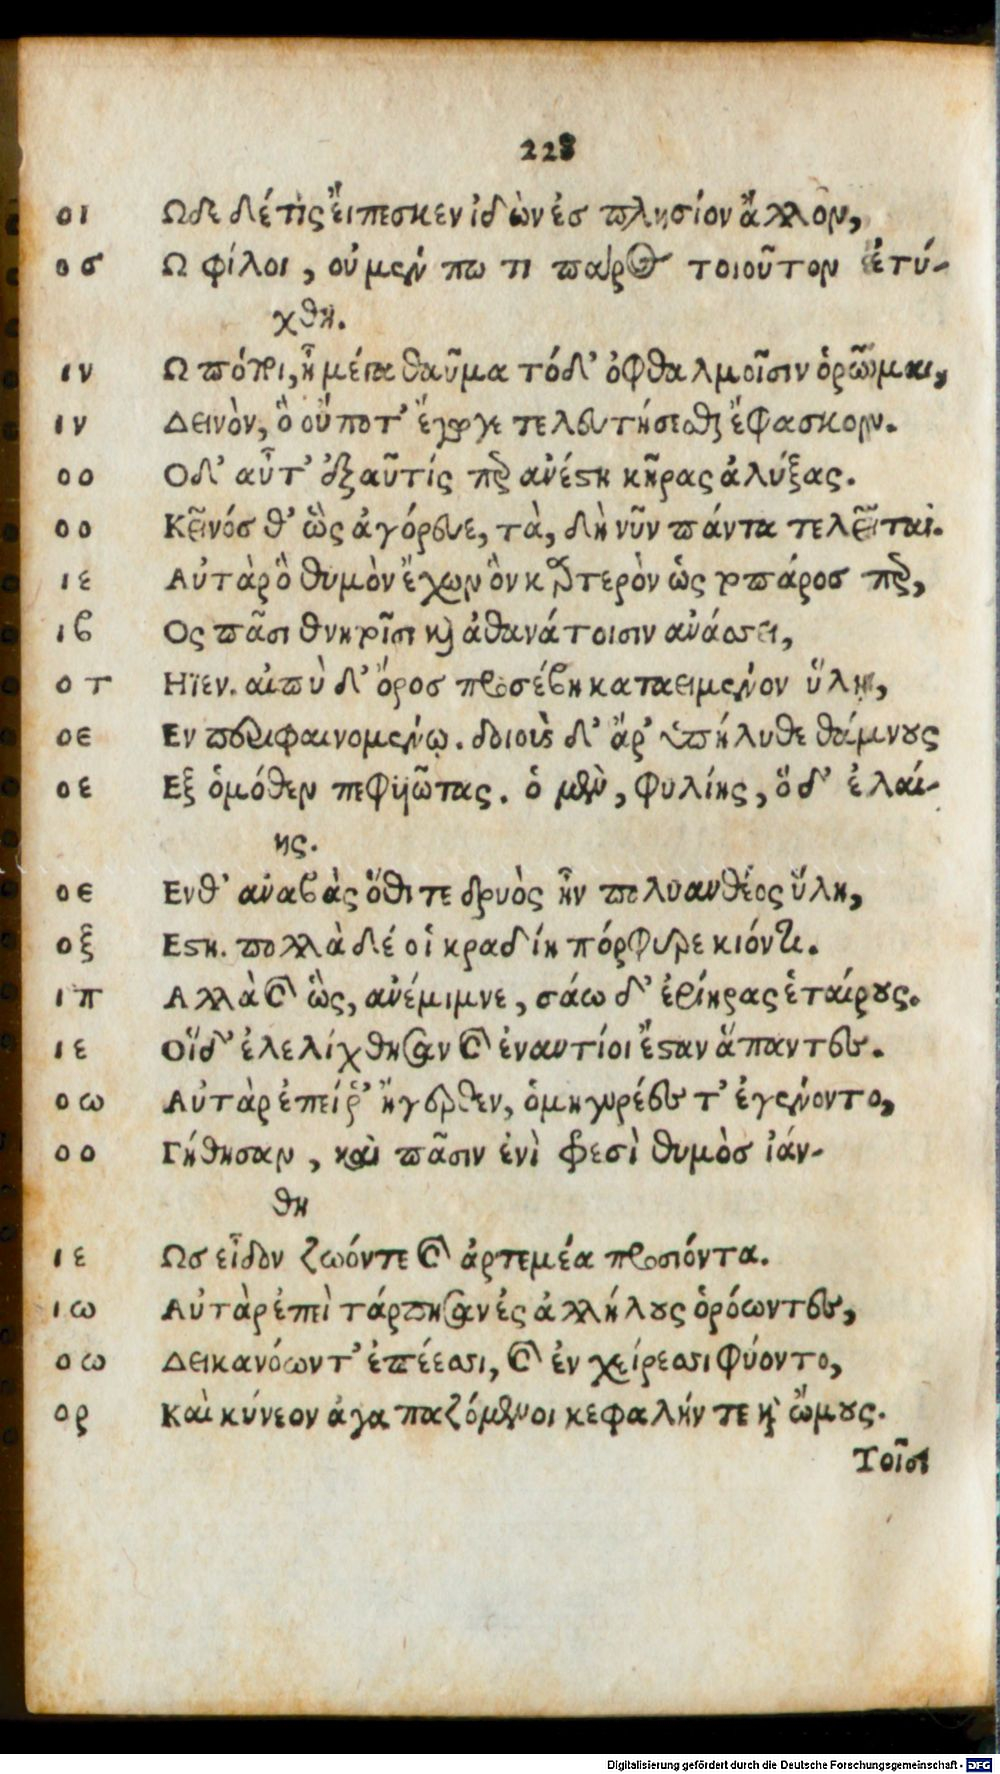 228
οι Ωδε δέ τὶς ἔιπεσκεν ἰδὼν ἐσ πλησίον ἄλλον,
οσ Ω φίλοι, οὐ μέν πω τι πάρος τοιοῦτον ἐτύ-
χθη.
ιν Ω πόποι, ἦ μέγα θαῦμα τόδ’ ὀφθαλμοῖσιν ὁρῶμαι,
ιν Δεινὸν, ὃ οὔποτ’ ἔγωγε τελευτήσεσθαι ἔφασκον.
οο Οδ’ αὖτ’ ἐξαῦτίς περ ανέστη κῆρας ἀλύξας.
οο Κεῖνόσ θ’ ὣς ἀγόρευε, τὰ, δὴ νῦν πάντα τελεῖται.
ιε Αὐτὰρ ὃ θυμὸν ἔχων ὃν καρτερὸν ὡς τοπάροσ περ,
ιβ Ος πᾶσι θνητοῖσι καὶ ἀθανάτοισιν ανάσσει,
οτ Ηϊεν. αἰπὺ δ’ ὄροσ προσέβη καταειμένον ὕλῃ,
οε Εν περιφαινομένῳ. δοιοὺς δ’ ἄρ’ ὑπήλυθε θάμνους
οε Εξ ὁμόθεν πεφυῶτας. ὁ μὲν, φυλίης, ὃ δ’ ἐλαί-
ης.
οε Ενθ’ αναβὰς ὅθι τε δρυὸς ἦν πολυανθέος ὕλη,
οξ Εστη. πολλὰ δέ οἱ κραδίη πόρφυρε κιόντι.
ιπ Αλλὰ καὶ ὣς, ανέμιμνε, σάω δ’ ἐρίηρας ἑταίρους.
ιε Οἵδ’ ἐλελίχθησαν καὶ ἐναντίοι ἔσταν ἅπαντες.
οω Αὐτὰρ ἐπεί ῥ’ ἤγερθεν, ὁμηγυρέες τ’ ἐγένοντο,
οο Γήθησαν, καὶ πᾶσιν ἐνὶ φρεσὶ θυμὸσ ἰάν-
θη
ιε Ωσ εἶδον ζωόντε καὶ ἀρτεμέα προσιόντα.
ιω Αὐτὰρ ἐπεὶ τάρπησαν ἐς ἀλλήλους ὁρόωντες,
οω Δεικανόωντ’ ἐπέεσσι, καὶ ἐν χείρεσσι φύοντο,
ορ Καὶ κύνεον ἀγαπαζόμενοι κεφαλήν τε καὶ ὤμους.
Τοῖσι
Digitalisierung gefördert durch die Deutsche Forschungsgemeinschaft - DFG